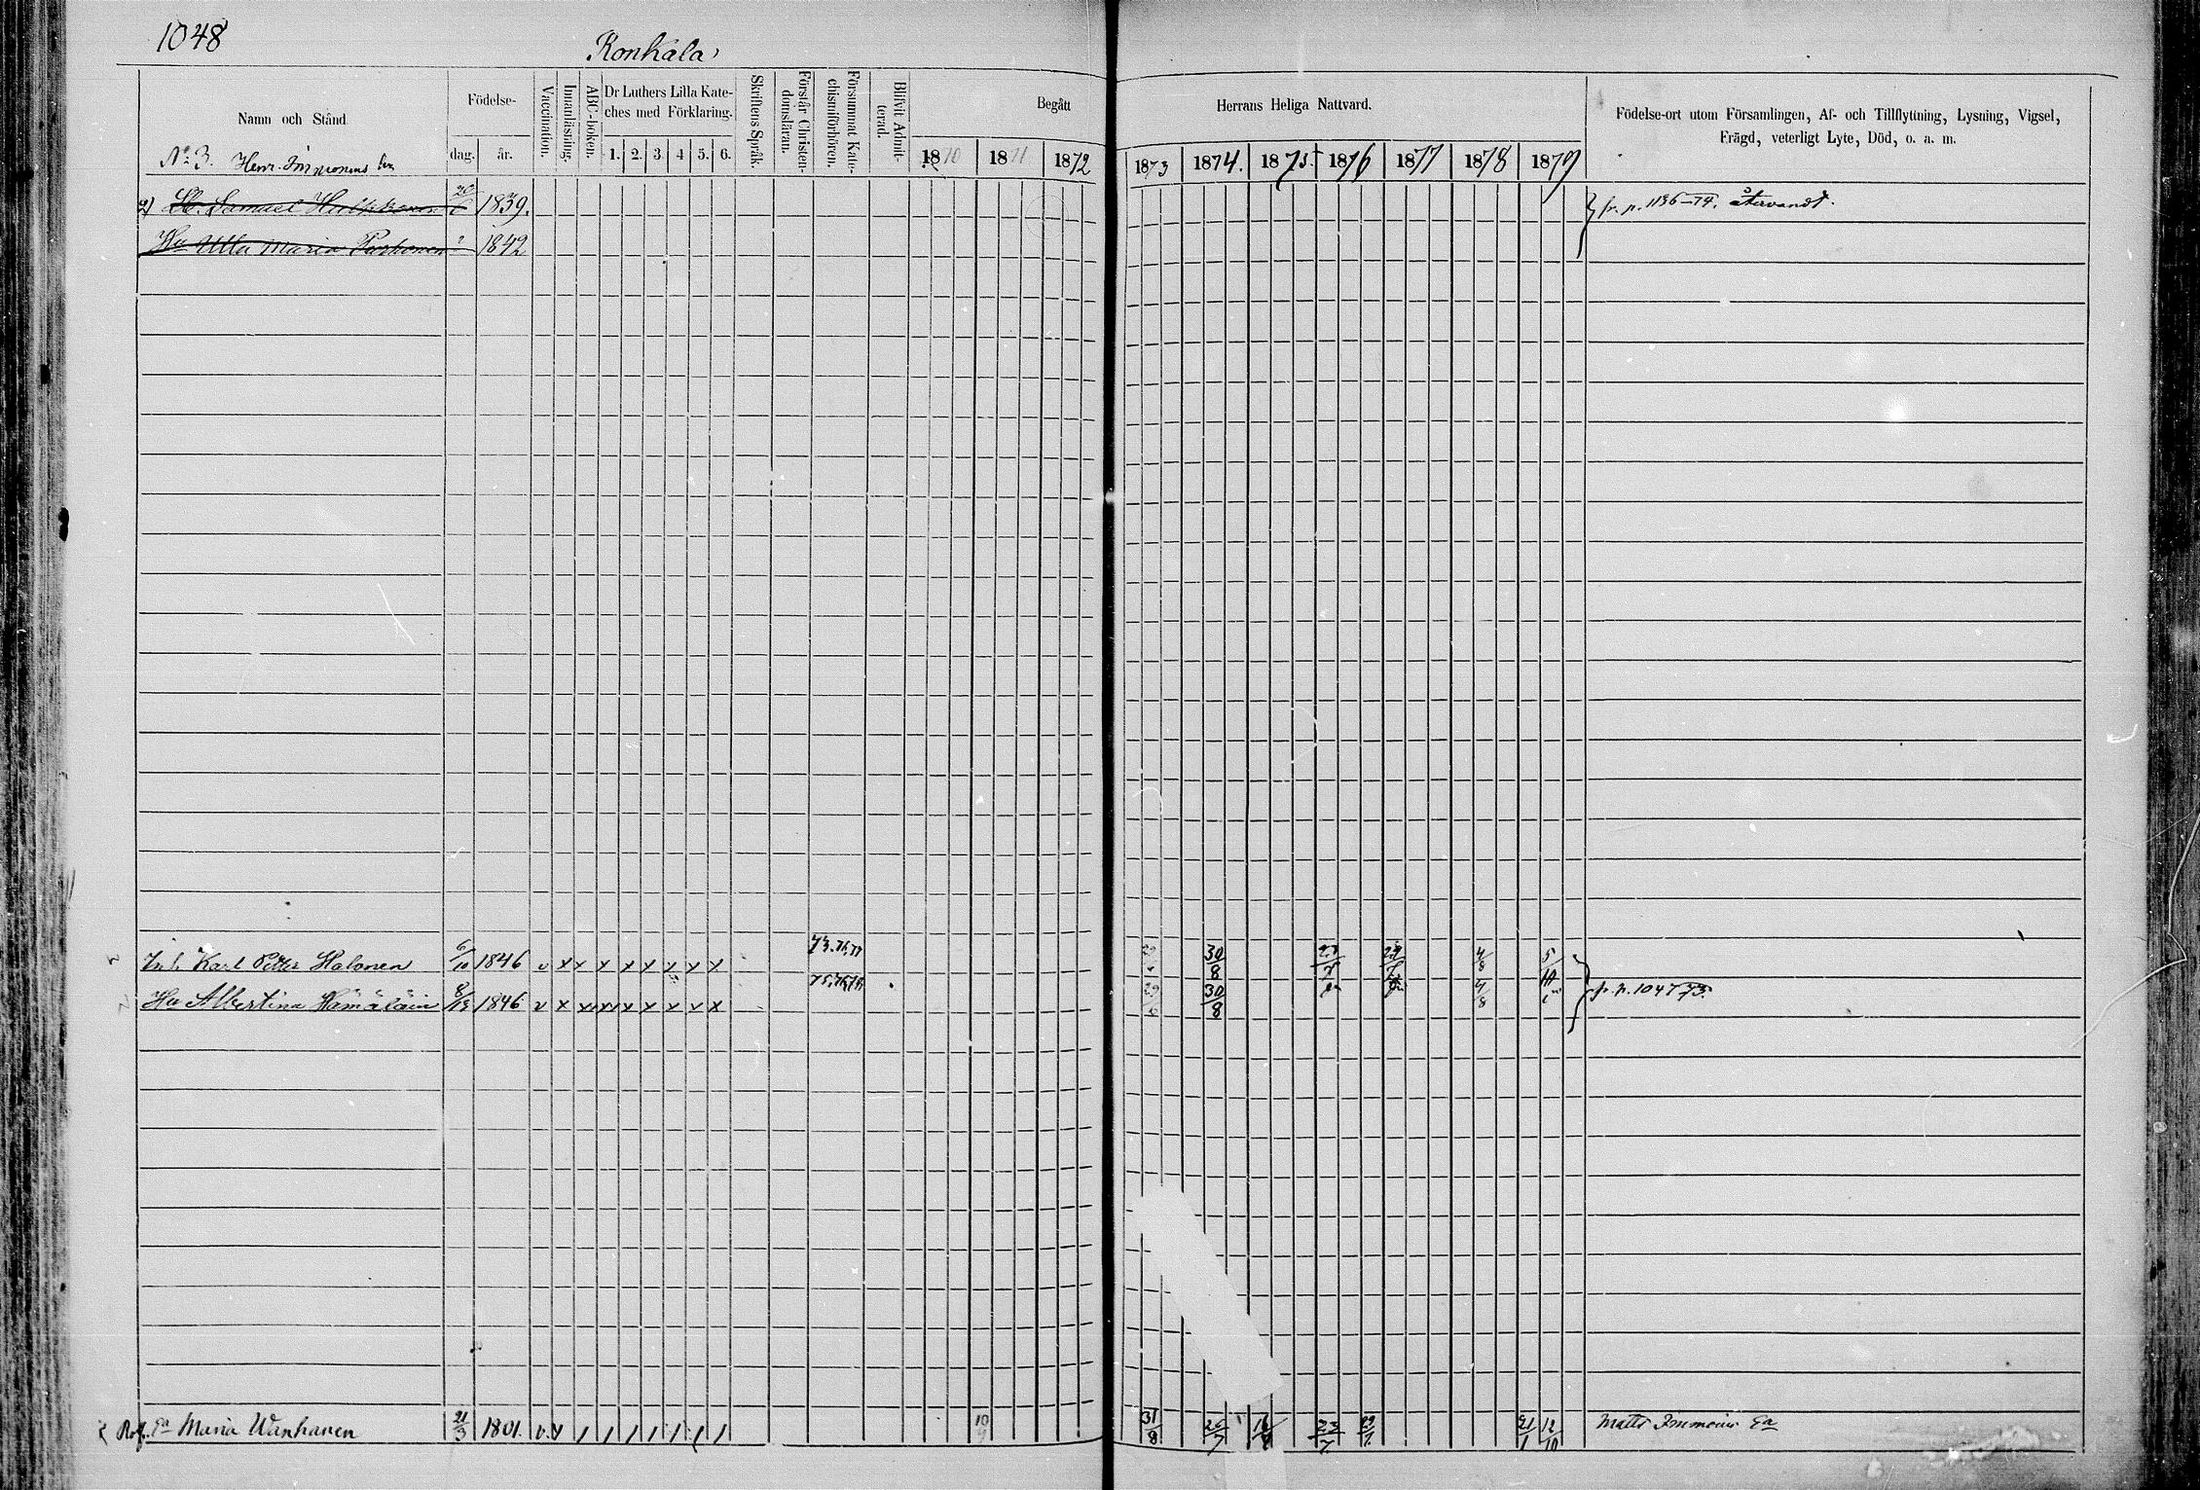 1048
Ronkala
Namn och Stånd.
Födelse-
dag. år.
Vaccination.
Innanläsning.
ABC-boken.
Dr Luthers Lilla Kate-
ches med Förklaring.
1. 2. 3. 4. 5. 6.
Skriftens Språk.
Förstår Christen-
domsläran.
Försummat Kate-
chismiförhören.
Blifvit Admit-
terad.
Begått Herrans Heliga Nattvard.
1870 1871 1872 1873 1874. 1875. 1876 1877 1878 1879
Födelse-ort utom Församlingen, Af- och Tillflyttning, Lysning, Vigsel,
Frägd, veterligt Lyte, Död, o. a. m.
No 3. Henr. Immonens
2) Samuel 1839. fr. p. 1136-74. återvändt.
Hu Ulla Maria 1842
73.
Karl Petter Halonen 6/10 1846 v x x x x x x x x 30/8 4/8
Hu Albertina Hämäläin 8/13 1846 v x x x x x x x 30/8 4/8 fr. p. 1047 73.
Maria Wanhanen 21/3 1801. v. 10/9 31/8 12/10 Matts Immoins Ea